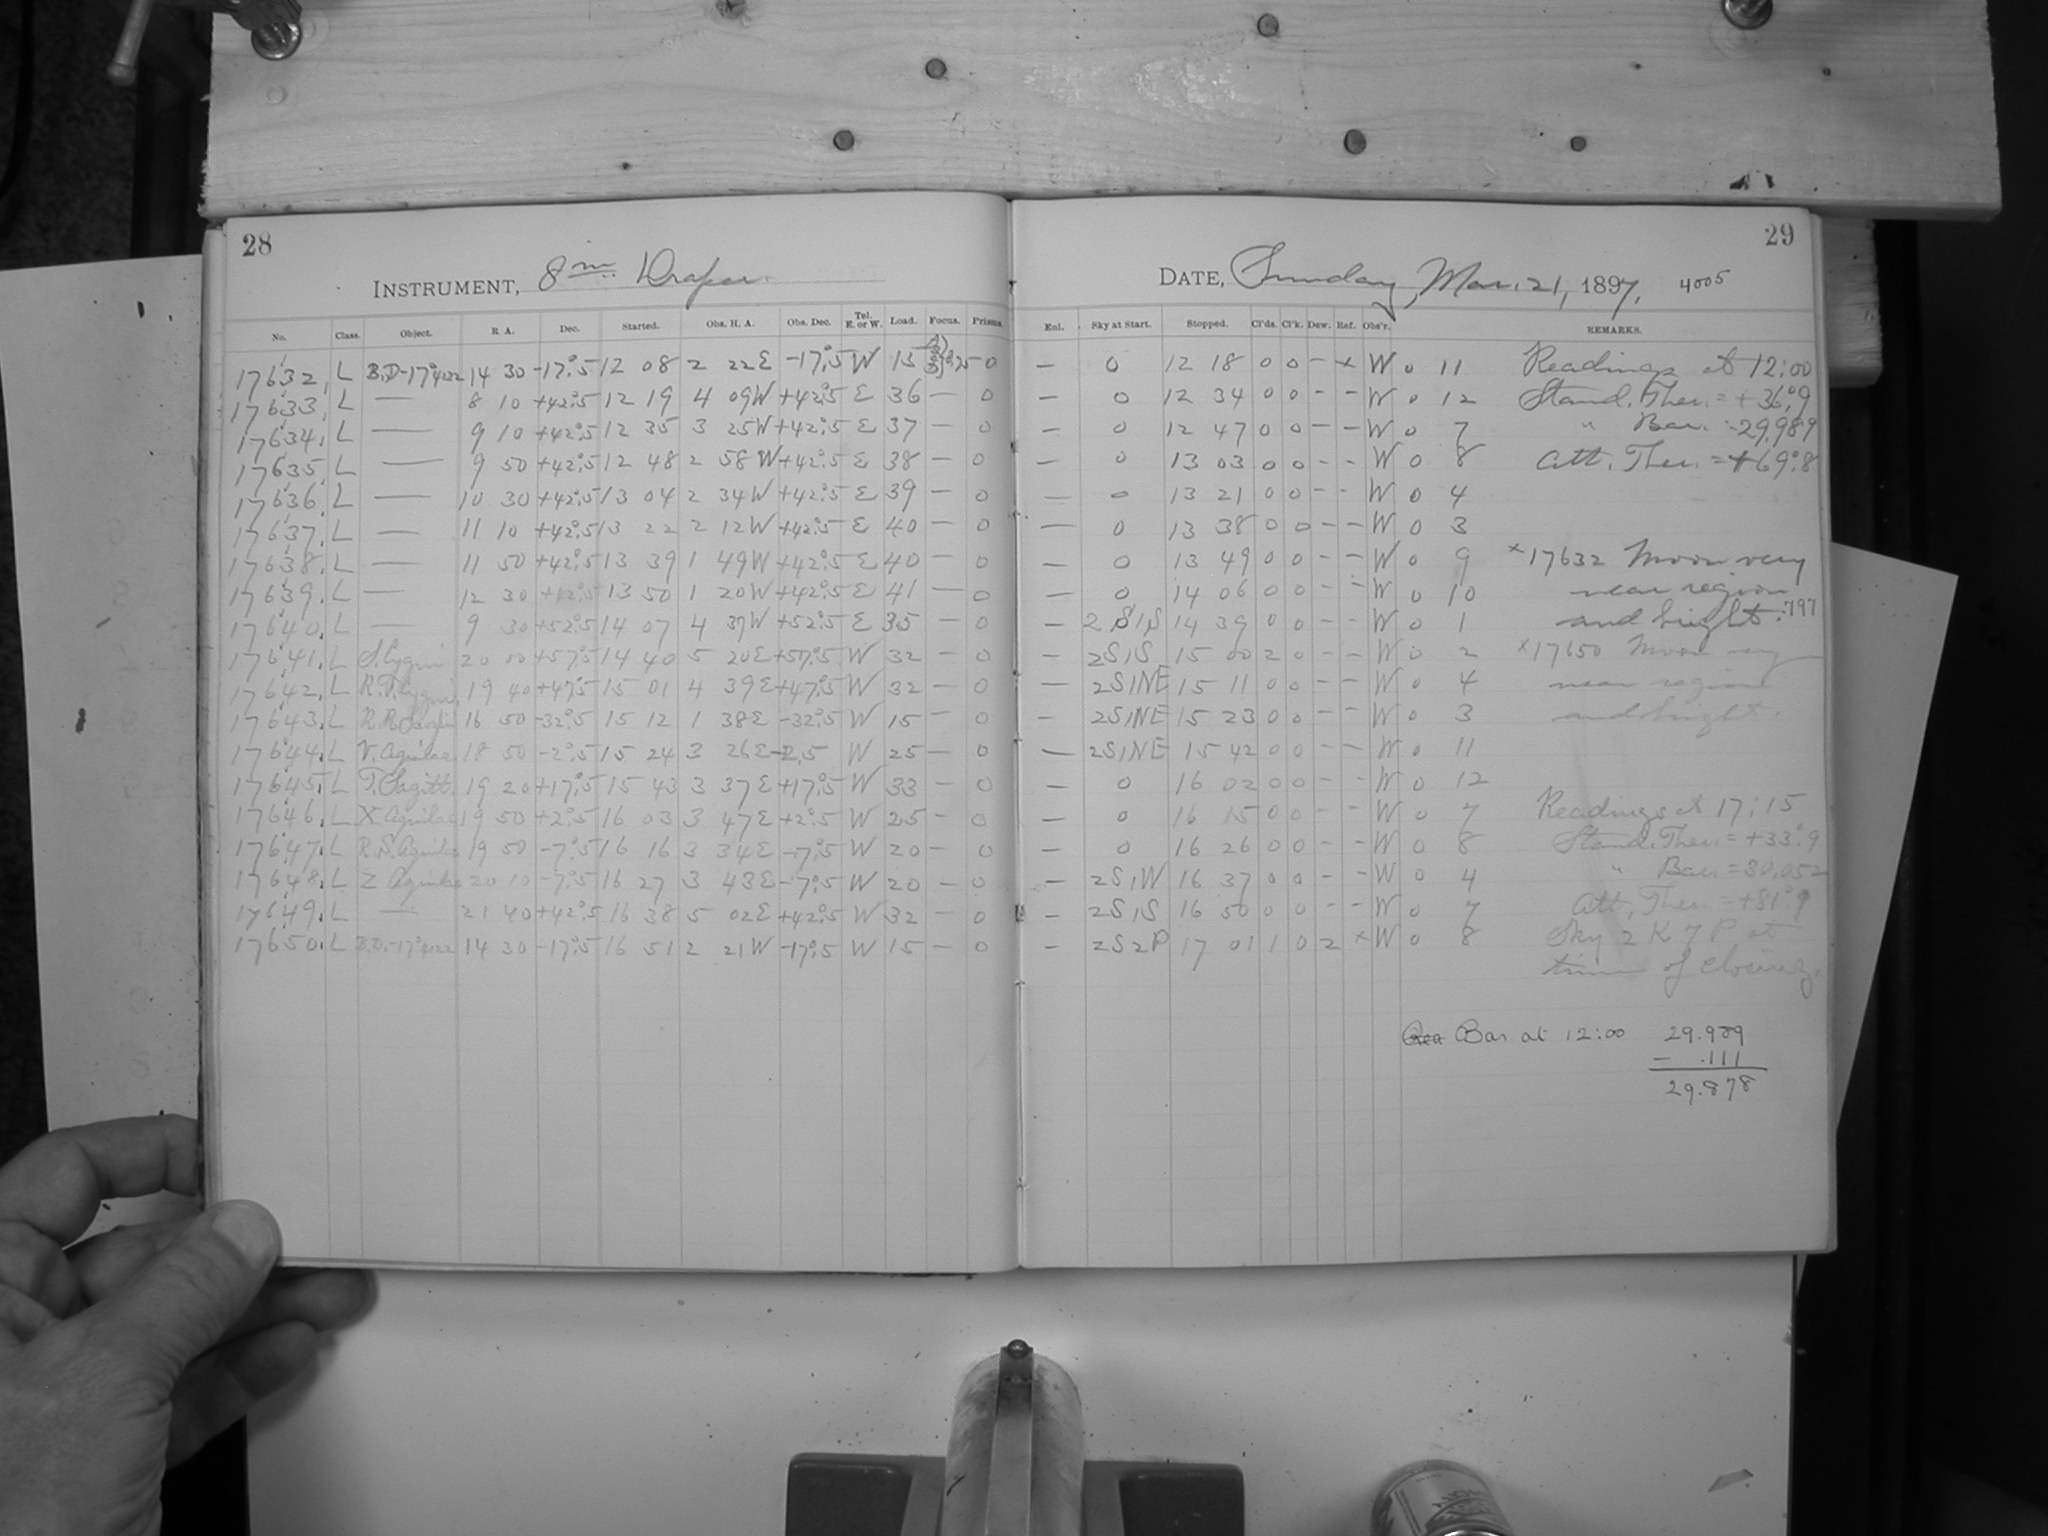 28
INSTRUMENT, 8 in. Draper.
No. Class. Object. R A. Dec. Started. Obs. H. A. Obs. Dec. Tel. E. or W. Load. Focus. Prisms.
17632. L B.D-17°4222 14 30 -17°.5 12 08 2 22E -17°.5 W 15 0
17633. L — 8 10 +42°.5 12 19 4 09W +42°.5 E 36 — 0
17634. L — 9 10 +42°.5 12 35 3 25W +42°.5 E 37 — 0
17635. L — 9 50 +42°.5 12 48 2 58W +42°.5 E 38 — 0
17636. L — 10 30 +42°.5 13 04 2 34W +42°.5 E 39 — 0
17637. L — 11 10 +42°.5 13 22 2 12W +42°.5 E 40 — 0
17638. L — 11 50 +42°.5 13 39 1 49W +42°.5 E 40 — 0
17639. L — 12 30 +42°.5 13 50 1 20W +42°.5 E 41 — 0
17640. L — 9 30 +52°.5 14 07 4 37W +52°.5 E 35 — 0
17641. L S.Cygni 20 00 +57°.5 14 40 5 20E +57°.5 W 32 — 0
17642. L R.T.Cygni 19 40 +47°.5 15 01 4 39E +47°.5 W 32 — 0
17643. L R.R.Scorpii 16 50 -32°.5 15 12 1 38E -32°.5 W 15 — 0
17644. L V.Aquilae 18 50 -2°.5 15 24 3 26E -2.5 W 25 — 0
17645. L T.Sagitt. 19 20 +17°.5 15 43 3 37E +17°.5 W 33 — 0
17646. L X Aquilae 19 50 +2°.5 16 03 3 47E +2°.5 W 25 — 0
17647. L R.S.Aquilae 19 50 -7°.5 16 16 3 34E -7°.5 W 20 — 0
17648. L Z Aquilae 20 10 -7°.5 16 27 3 43E -7°.5 W 20 — 0
17649. L — 21 40 +42°.5 16 38 5 02E +42°.5 W 32 — 0
17650. L B.D.-17°4222 14 30 -17°.5 16 51 2 21W -17°.5 W 15 — 0
29
DATE, Sunday, Mar. 21, 1897. 4005
Enl. Sky at Start. Stopped. Cl'ds. Cl'k. Dew. Ref. Obs'r. REMARKS.
— 0 12 18 0 0 - x W 0 11 Readings at 12:00
— 0 12 34 0 0 - - W 0 12 Stand. Ther. = +36°.9
— 0 12 47 0 0 - - W 0 7 " Bar. = 29.989
— 0 13 03 0 0 - - W 0 8 Att. Ther. = +69°.8
— 0 13 21 0 0 - - W 0 4
— 0 13 38 0 0 - - W 0 3
— 0 13 49 0 0 - - W 0 9 x17632 Moon very
— 0 14 06 0 0 - - W 0 10 near region
— 2S1S 14 39 0 0 - - W 0 1 and bright. .797
— 2S1S 15 00 2 0 - - W 0 2 x17650 Moon very
— 2S1NE 15 11 0 0 - - W 0 4 near region
— 2S1NE 15 23 0 0 - - W 0 3 and bright.
— 2S1NE 15 42 0 0 - - W 0 11
— 0 16 02 0 0 - - W 0 12
— 0 16 15 0 0 - - W 0 7 Readings at 17:15
— 0 16 26 0 0 - - W 0 8 Stand. Ther. = +33°.9
— 2S1W 16 37 0 0 - - W 0 4 " Bar. = 30.052
— 2S1S 16 50 0 0 - - W 0 7 Att. Ther. = +81°.9
— 2S2P 17 01 1 0 2 x W 0 8 Sky 2 K 7 P at
time of closing.
Bar at 12:00 29.989
- .111
29.878